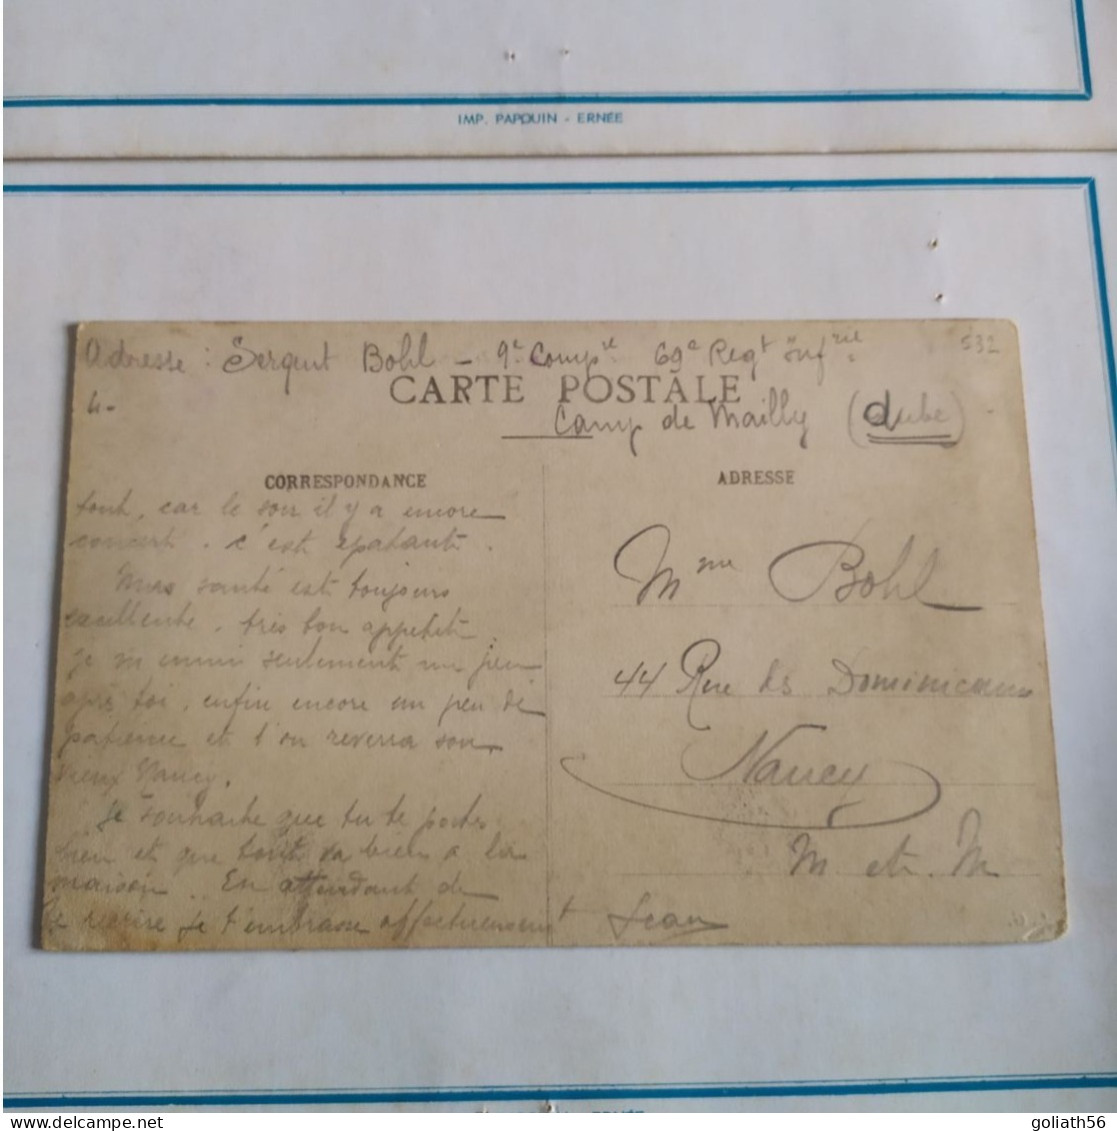 IMP. PAPOUIN - ERNÉE
Adresse : Sergent Bohl - 9e Compie 69e Regt Infrie
532
4-
CARTE POSTALE
Camp de Mailly (Aube)
CORRESPONDANCE
tout, car le soir il y a encore
concert. c'est épatant.
Mes santé est toujours
excellente. très bon appétit
je m'ennui seulement un peu
après toi, enfin encore un peu de
patience et l'on reverra son
vieux Nancy.
je souhaite que tu te portes
bien et que tout va bien à la
maison. En attendant de
te reçrire je t'embrasse affectueusement
Jean
ADRESSE
Mme Bohl
44 Rue des Dominicains
Nancy
M et M
goliath56